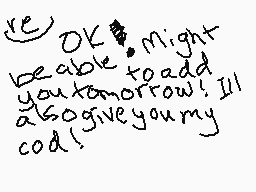 re
OK! Might
be able to add
you tomorrow! Ill
also give you my
cod!